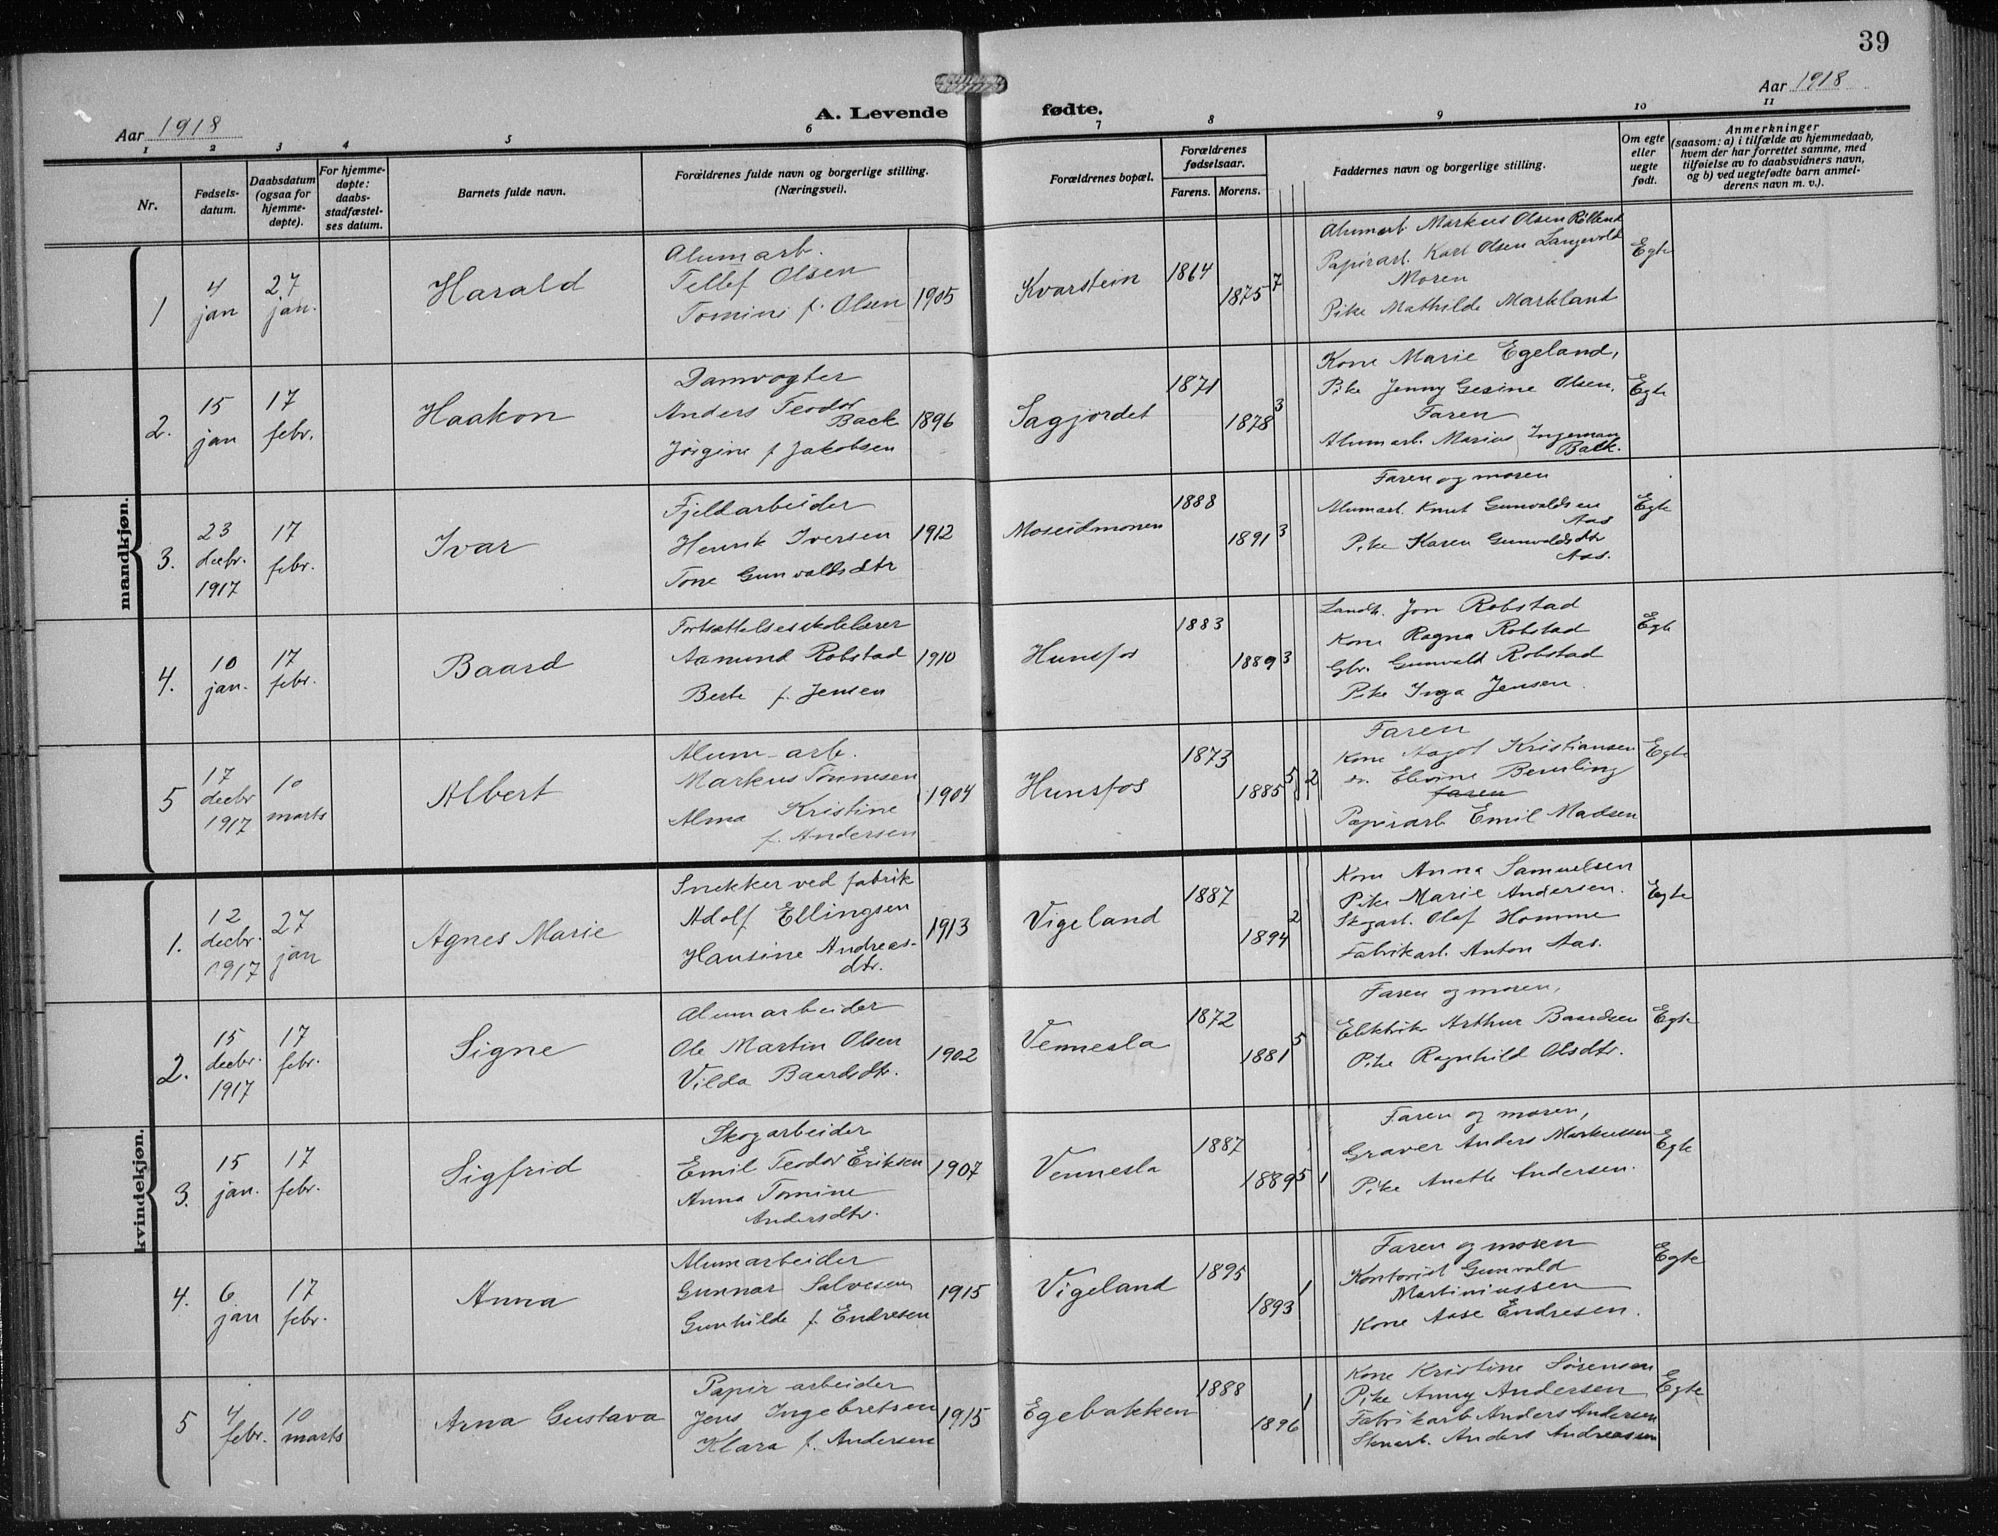 39
Aar 1918
A. Levende fødte.
Aar 1918
1 2 3 4 5 6 7 8 9 10 11
Nr.
Fødsels-
datum.
Daabsdatum
(ogsaa for
hjemme-
døpte).
For hjemme-
døpte:
daabs-
stadfæstel-
ses datum.
Barnets fulde navn.
Forældrenes fulde navn og borgerlige stilling.
(Næringsvei).
Forældrenes bopæl.
Forældrenes
fødselsaar.
Farens. Morens.
Faddernes navn og borgerlige stilling.
Om egte
eller
uegte
født.
Anmerkninger
(saasom: a) i tilfælde av hjemmedaab,
hvem der har forrettet samme, med
tilføielse av to daabsvidners navn,
og b) ved uegtefødte barn anmel-
derens navn m. v.).
mandkjøn.
1
4
jan
27
jan.
Harald
Alumarb.
Tellef Olsen
Tomine f. Olsen
1905
Kvarstein
1864
1875
7
Alumarb Markus Olsen
Papirarb. Karl Olsen Langevold
Moren
Pike Mathilde Markland
Egte
2.
15
jan
17
febr.
Haakon
Damvogter
Anders Teodor
Back
Jørgine f Jakobsen
1896
Sagjordet
1871
1878
3
Kone Marie Egeland,
Pike Jenny Gesine Olsen,
Faren
Alumarb. Marius Ingeman
Back.
Egte
3.
23
decbr.
1917
17
febr.
Ivar
Fjeldarbeider
Henrik Iversen
Tone Gunvaldsdtr
1912
Moseidmonen
1888
1891
3
Faren og moren
Alumarb. Knut Gunvaldsen
Aas
Pike Karen Gunvaldsdtr
Aas.
Egte
4.
10
jan.
17
febr.
Baard
Fortsættelsesskolelærer
Aamund Robstad
Berte f. Jensen
1910
Hunsfos
1883
1889
3
Landh. Jon Robstad
Kone Ragna Robstad
Gbr. Gunvald Robstad
Pike Inga Jensen.
Egte
5
17
decbr
1917
10
marts
Albert
Alum-arb.
Markus Tønnesen
Alma Kristine
f. Andersen
1904
Hunsfos
1873
1885
5
2
Faren
Kone Aagot Kristiansen
Elevine Beruling
faren
Papirarb Emil Madsen
Egte
kvindekjøn.
1.
12
decbr.
1917
27
jan
Agnes Marie
Snekker ved fabrik
Adolf Ellingsen
Hansine Andreas-
dtr.
1913
Vigeland
1887
1894
2
Kone Anna Samuelsen
Pike Marie Andersen.
Skogarb. Olaf Homme
Fabrikarb. Anton Aas.
Egte
2.
15
decbr.
1917
17
febr.
Signe
Alumarbeider
Ole Martin Olsen
Vilda Baardsdtr.
1902
Vennesla
1872
1881
5
Faren og moren,
Elektrik Arthur Baardsen
Pike Ragnhild Olsdtr.
Egte
3.
15
jan.
17
febr.
Sigfrid
Skogarbeider
Emil Teodor Eriksen
Anna Tomine
Andersdtr.
1907
Vennesla
1887
1889
5
1
Faren og moren,
Graver Anders Markussen
Pike Anette Andersen.
Egte
4.
6
jan
17
febr.
Anna
Alumarbeider
Gunnar Salvesen
Gunhilde f. Endresen
1915
Vigeland
1895
1893
1
Faren og moren
Kontorist Gunvald
Martiniussen
Kone Aase Endresen.
Egte
5
4
febr.
10
marts
Arna Gustava
Papir arbeider
Jens Ingebretsen
Klara f. Andersen
1915
Egebakken
1888
1896
1
Kone Kristine Sørensen
Pike Anny Andersen
Fabrikarb Anders Andersen
Stenarb. Anders Andreassen
Egte